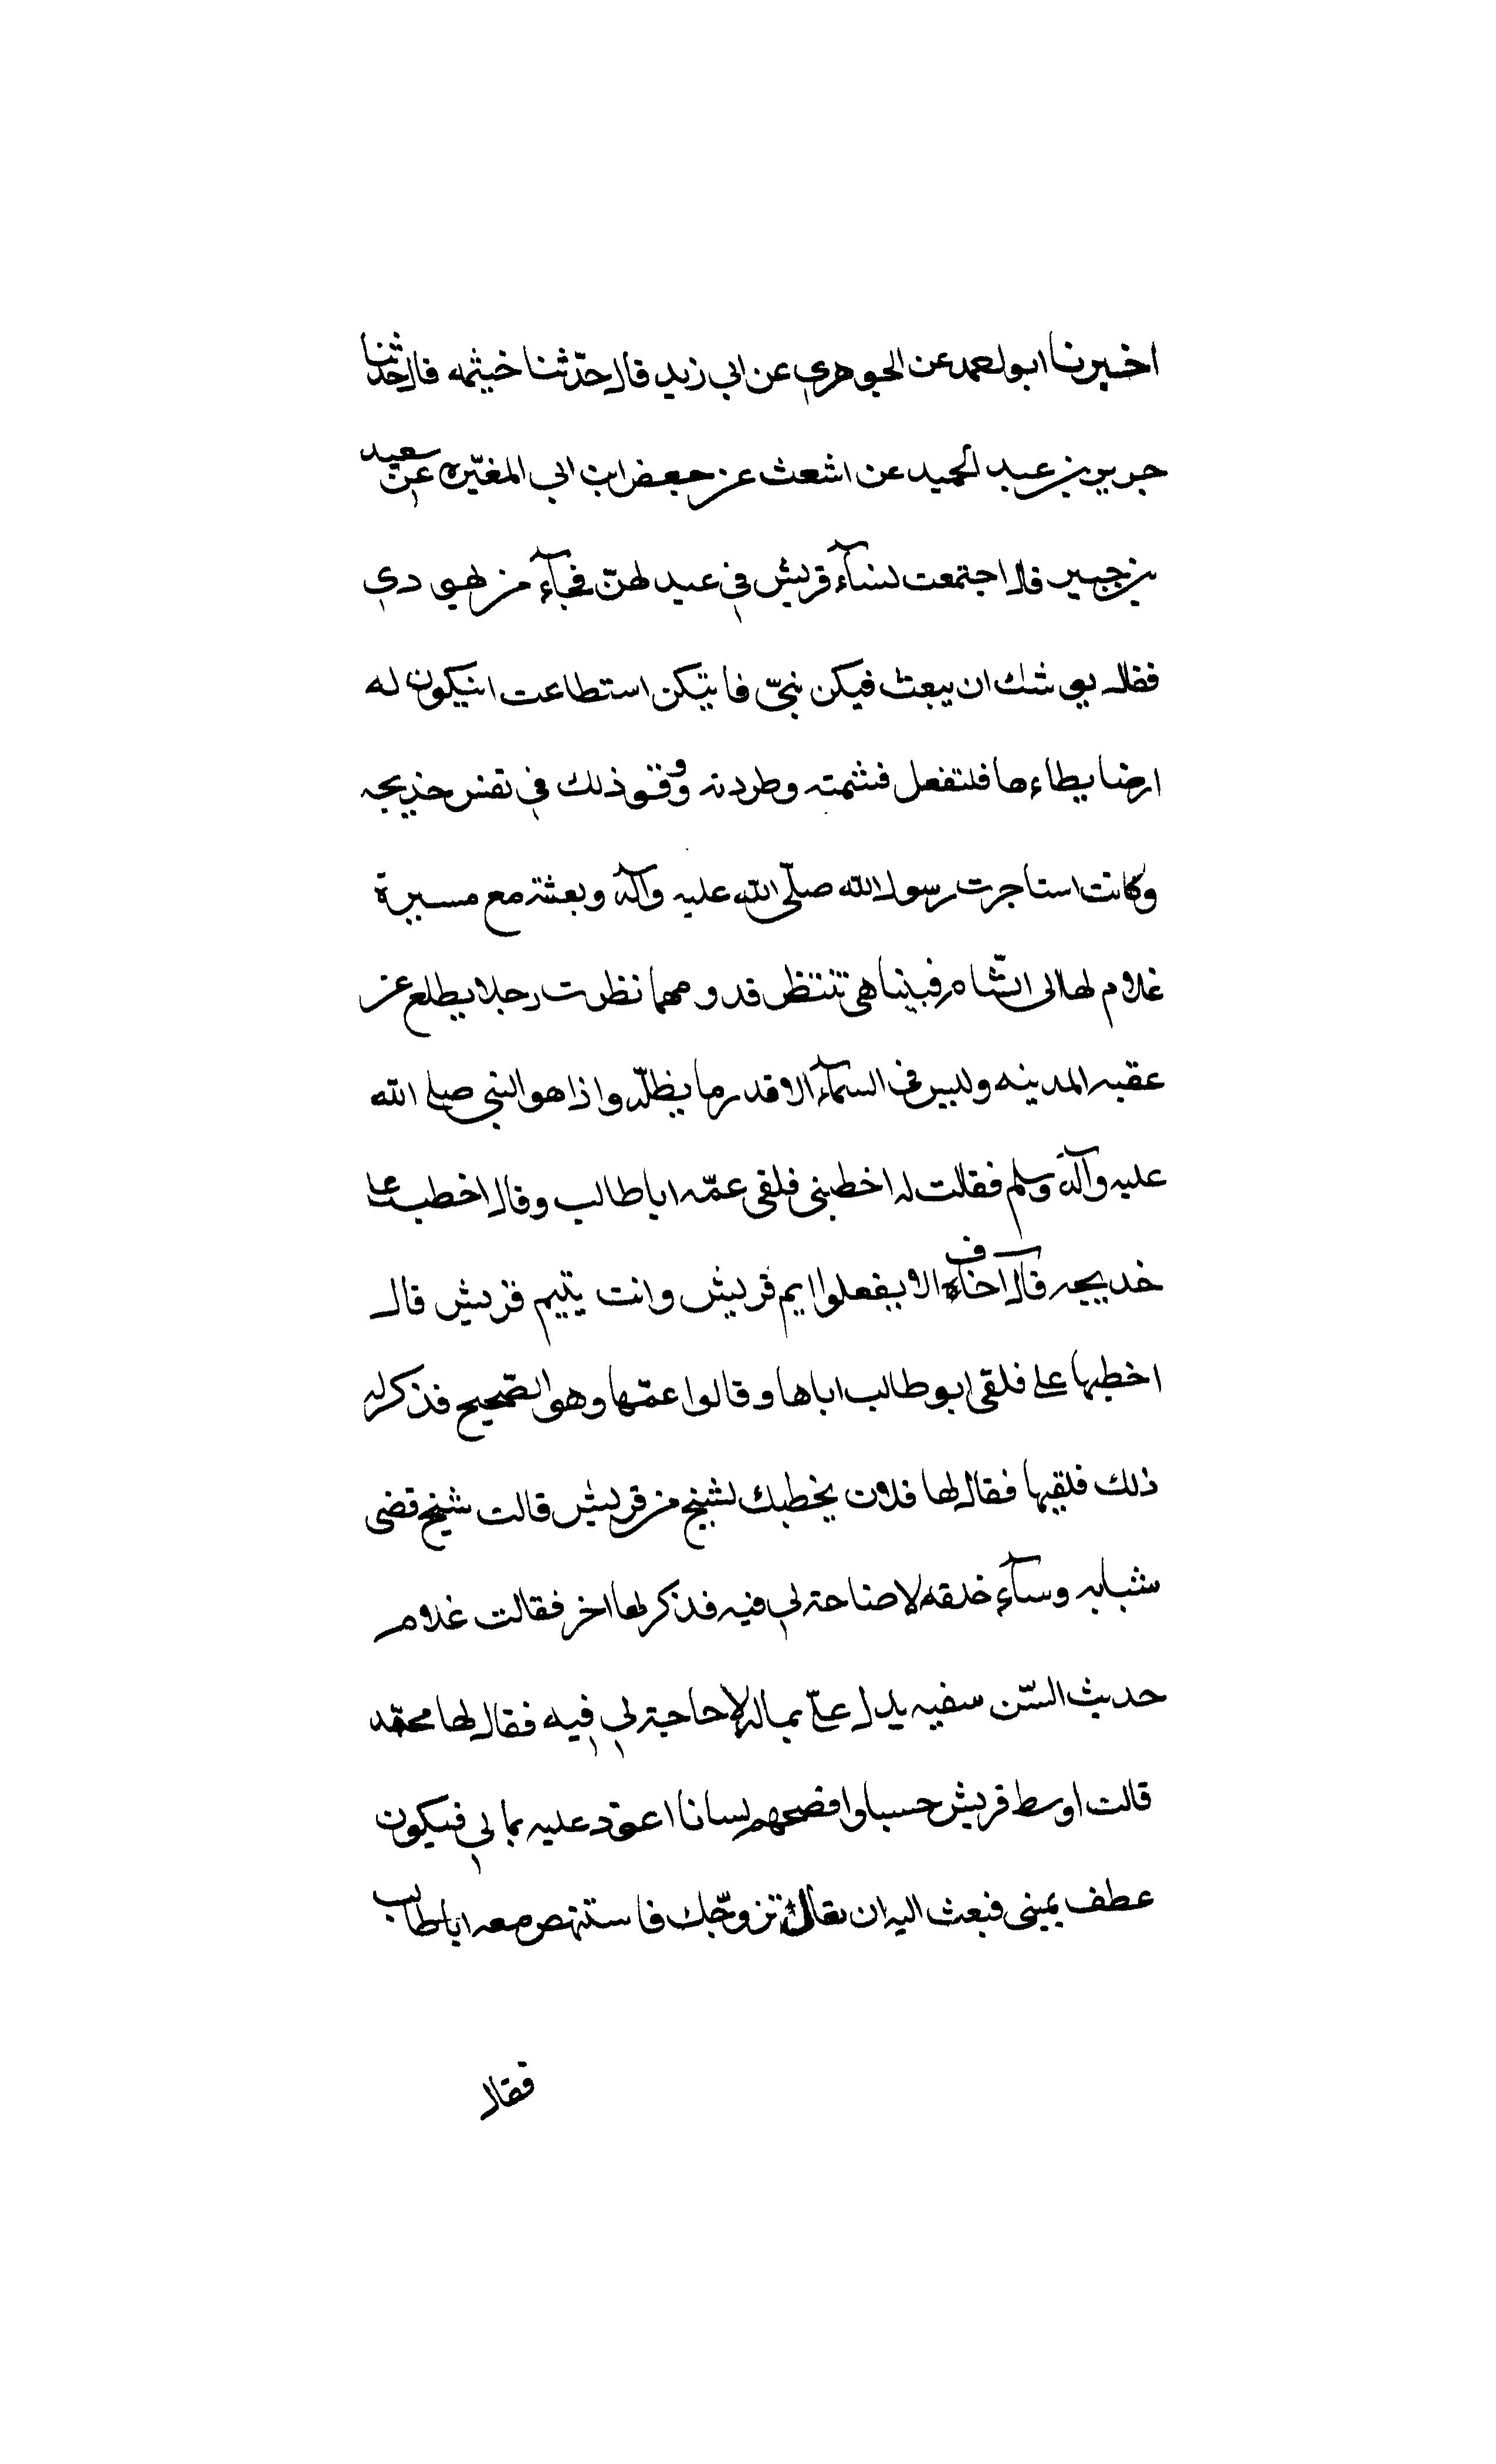 اخبرنا ابو احمد عن الجوهري عن ابي زيد قال حدّثنا خيثمه قال حدّثنا
جرير بن عبد الحميد عن اشعث عن جعفر ابن ابي المغيّره عن سعيد
بن جبير قال اجتمعت نسآء قريش في عيد لهنّ فجآء من لهيو دي
فقال يوشك ان يبعث فيكن نبيّ فايتكن استطاعت ان يكون له
ارضا يطاءها فلتفعل فشتمته وطردته ووقر ذلك في نفس خديجه
وكانت استاجرت رسول الله صلّى الله عليه وآله وبعثته مع ميسرة
غلام لها الى الشّام فبينا هي تنتظر قدومهما نظرت رجلا يطلع عن
عقبه المدينه وليس في السمآء الا قدر ما يظلّه واذا هو النبي صلى الله
عليه وآله وسلم فقالت له اخطبني فلقى عمّه ابا طالب وقال اخطب على
خديجه قال اخاف الا يفعلوا ايم قريش وانت يتيم قريش قال
اخطبها على فلقى ابو طالب اباها وقالوا عمّها وهو الصّحيح فذكر له
ذلك فلقيها فقال لها فلان يخطبك لشيخ من قريش قالت شيخ قضى
شبابه وسآء خلقه لا حاجة لي فيه فذكر لها اخر فقالت غلام
حديث السّن سفيه يدل علىّ بماله لا حاجة لي فيه فقال لها محمّد
قالت اوسط قريش حسبا وافصحهم لسانا اعود عليه بمالي فيكون
عطف يميني فبعث اليه ان تعال نزوّجك فاستنهض معه ابا طالب
فقال